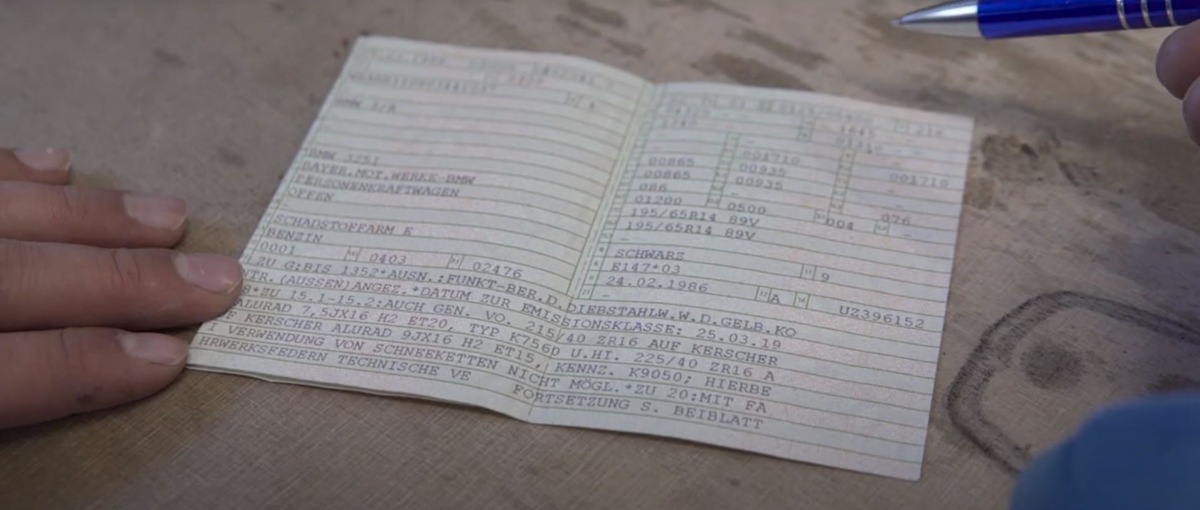 BMW 3/R
BMW 325I
BAYER.MOT.WERKE-BMW
PERSONENKRAFTWAGEN
OFFEN
SCHADSTOFFARM E
BENZIN
0001 0403 02476
001710
00865 00935 001710
00865 00935
086
01200 0500 004 076
195/65R14 89V
195/65R14 89V
SCHWARZ
E147*03 9
24.02.1986 A UZ396152
ZU G:BIS 1352*AUSN.:FUNKT-BER.D.DIEBSTAHLW.W.D.GELB.KO
NTR.(AUSSEN)ANGEZ.*DATUM ZUR EMISSIONSKLASSE: 25.03.19
8*ZU 15.1-15.2:AUCH GEN. VO. 215/40 ZR16 AUF KERSCHER
ALURAD 7,5JX16 H2 ET20, TYP K7560 U.HI. 225/40 ZR16 A
F KERSCHER ALURAD 9JX16 H2 ET15, KENNZ. K9050; HIERBE
I VERWENDUNG VON SCHNEEKETTEN NICHT MÖGL.*ZU 20:MIT FA
HRWERKSFEDERN TECHNISCHE VE FORTSETZUNG S. BEIBLATT